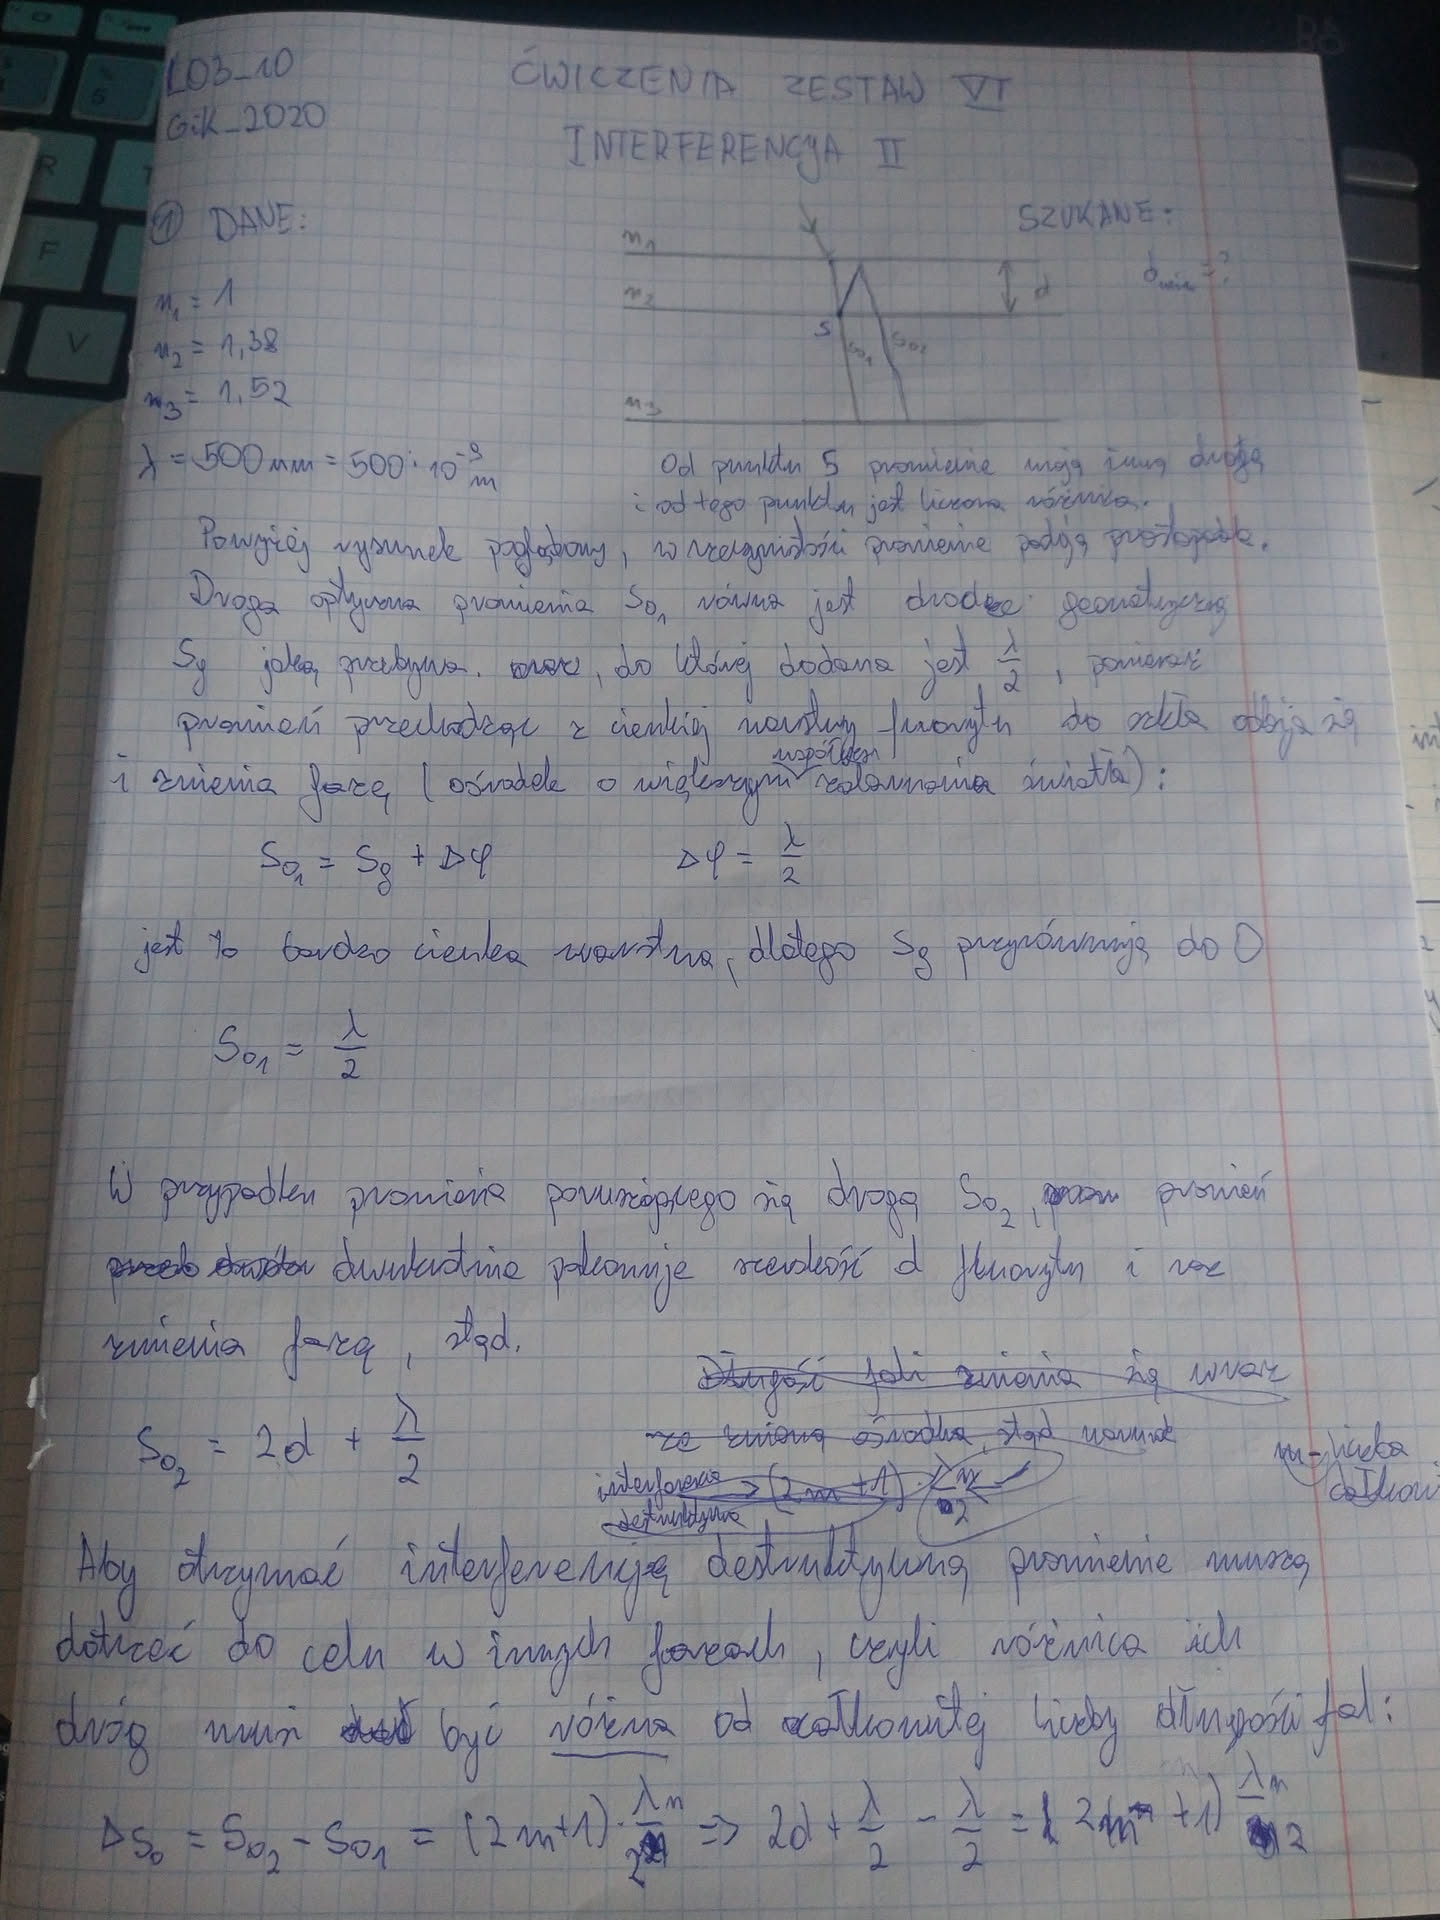 L03_10
ĆWICZENIA ZESTAW VI
GiK_2020
INTERFERENCJA II
① DANE:
SZUKANE:
n₁
n₂
d
d_min = ?
S
S₀₁
S₀₂
n₃
n₁ = 1
n₂ = 1,38
n₃ = 1,52
λ = 500 nm = 500 · 10⁻⁹ m
Od punktu S promienie mają inną drogę
i od tego punktu jest liczona różnica.
Powyżej rysunek poglądowy, w rzeczywistości promienie padają prostopadle.
Droga optyczna promienia S₀₁ równa jest drodze geometrycznej
Sg jaką przebywa, do której dodana jest λ/2, ponieważ
promień przechodząc z cienkiej warstwy fluorytu do szkła odbija się
i zmienia fazę (ośrodek o większym współcz. załamania światła):
S₀₁ = Sg + Δφ Δφ = λ/2
jest to bardzo cienka warstwa, dlatego Sg przyrównuję do 0
S₀₁ = λ/2
W przypadku promienia poruszającego się drogą S₀₂, promień
dwukrotnie pokonuje szerokość d fluorytu i raz
zmienia fazę, stąd.
Długość fali zmienia się wraz
ze zmianą ośrodka, stąd warunek
S₀₂ = 2d + λ/2
interferencja destruktywna → (2m+1) · λn/2
m - liczba
całkow
Aby otrzymać interferencję destruktywną promienie muszą
dotrzeć do celu w innych fazach, czyli różnica ich
dróg musi być różna od całkowitej liczby długości fal:
ΔS₀ = S₀₂ - S₀₁ = (2m+1) · λn/2 => 2d + λ/2 - λ/2 = (2m+1) λn/2